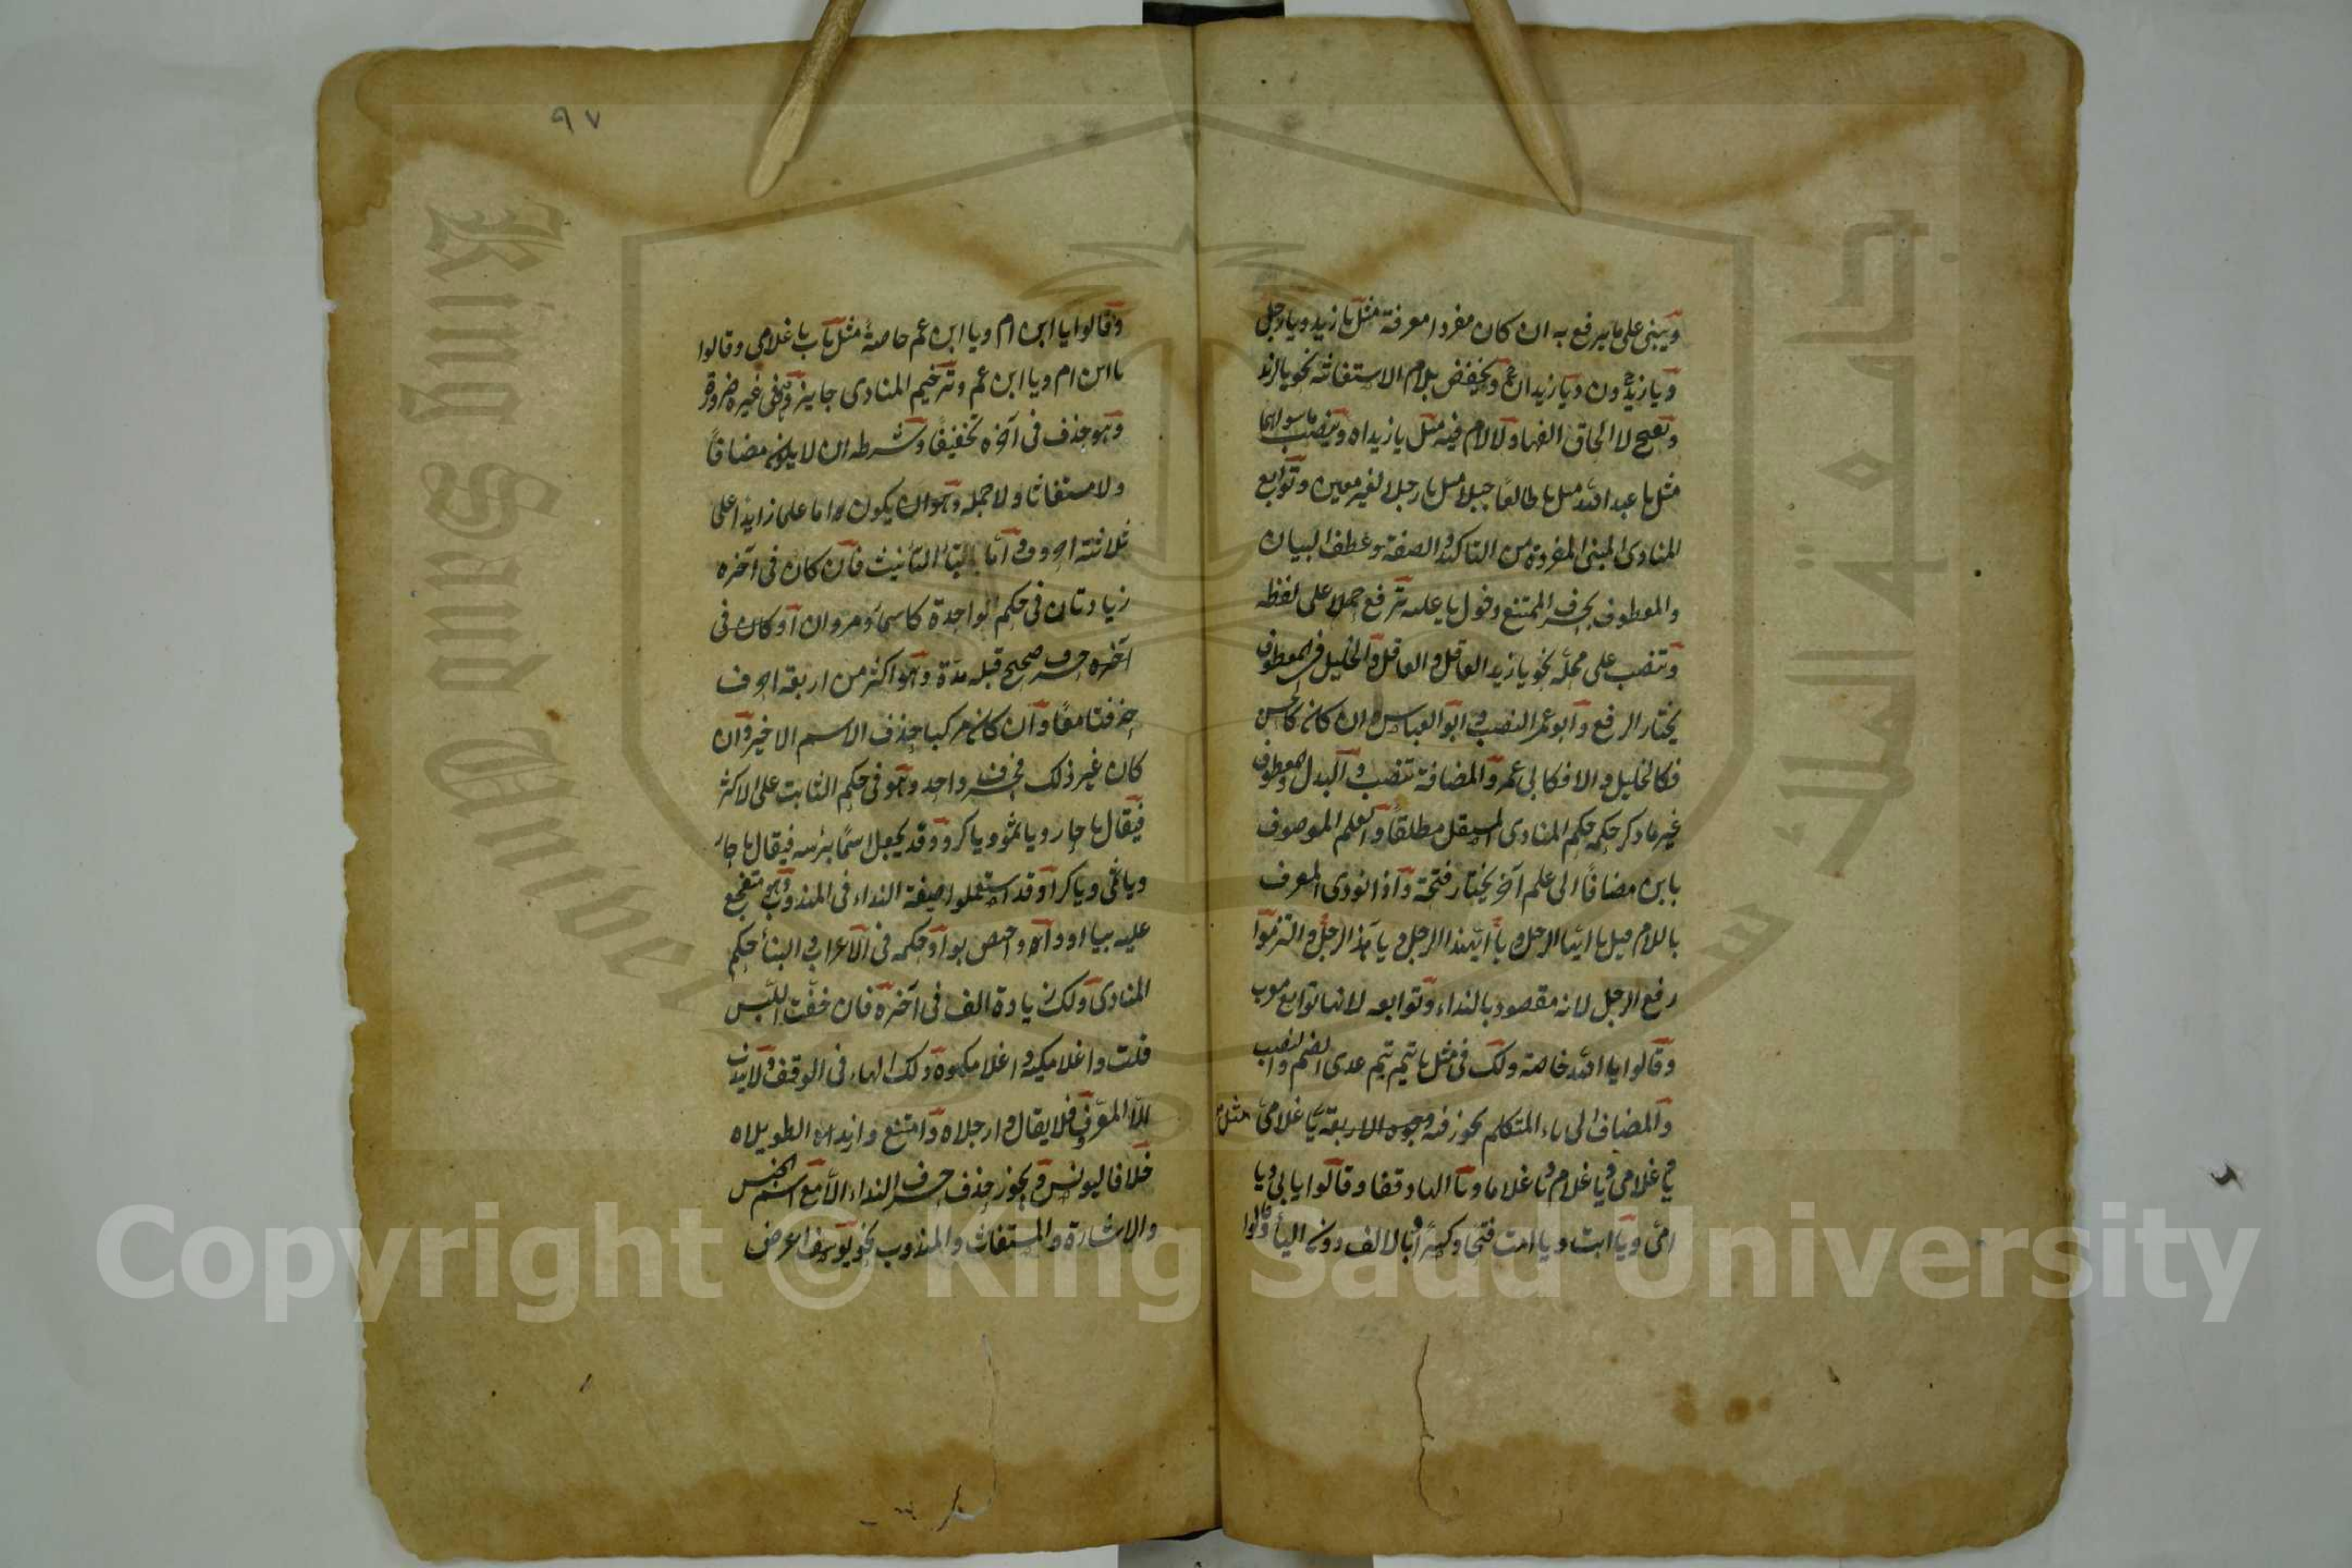 ويبنى على ما يرفع به ان كان مفردا معرفة مثل يا زيد ويا رجل
ويا زيدون ويا زيدان ويخفض بلام الاستغاثة نحو يا لزيد
وتفتح لا لحاق الفها ولا لام فيه مثل يا زيداه وينصب ما سواهما
مثل يا عبد الله مثل يا طالعا جبلا مثل يا رجلا لغير معين وتوابع
المنادى المبنى المفردة من التاكيد والصفة وعطف البيان
والمعطوف بحرف الممتنع دخول يا عليه ترفع حملا على لفظه
وتنصب على محله نحو يا زيد العاقل والعاقل والخليل فى المعطوف
يختار الرفع وابو عمر النصب وابو العباس ان كان كالحسن
فكالخليل والا فكابى عمر والمضافة تنصب والبدل والمعطوف
غير ما ذكر حكمه حكم المنادى المستقل مطلقا والعلم الموصوف
بابن مضافا الى علم آخر يختار فتحه واذا نودى المعرف
باللام قيل يا ايها الرجل ويا ايهذا الرجل ويا هذا الرجل والتزموا
رفع الرجل لانه مقصود بالنداء وتوابعه لانها توابع معرب
وقالوا يا الله خاصة ولك فى مثل يا تيم تيم عدى الضم والنصب
والمضاف الى ياء المتكلم يجوز فيه وجوه الاربعة يا غلامى مثل
يا غلامى ويا غلام ويا غلاما وبالهاء وقفا وقالوا يا ابى ويا
امى ويا ابت ويا امت فتحا وكسرا وبالالف دون الياء وقالوا
٩٧
وقالوا يا ابن ام ويا ابن عم خاصة مثل باب يا غلامى وقالوا
يا ابن ام ويا ابن عم وترخيم المنادى جايز وفى غيره ضرورة
وهو حذف فى آخره تخفيفا وشرطه ان لا يكون مضافا
ولا مستغاثا ولا جملة وهو ان يكون اما علما زايدا على
ثلاثة احرف واما بتاء التأنيث فان كان فى آخره
زيادتان فى حكم الواحدة كاسماء ومروان او كان فى
آخره حرف صحيح قبله مدة وهو اكثر من اربعة احرف
حذفتا معا وان كان مركبا حذف الاسم الاخير وان
كان غير ذلك فحرف واحد وهو فى حكم الثابت على الاكثر
فيقال يا حار ويا ثمو ويا كرو وقد يجعل اسما برأسه فيقال يا حار
ويا ثمى ويا كرا وقد استعملوا صيغة النداء فى المندوب وهو متفجع
عليه بيا او وا واختص بوا وحكمه فى الاعراب والبناء حكم
المنادى ولك زيادة الف فى آخره فان خفت اللبس
قلت واغلامكيه واغلامكموه ولك الهاء فى الوقف ولا يندب
الا المعروف فلا يقال وارجلاه وامتنع وازيد الطويلاه
خلافا ليونس ويجوز حذف حرف النداء الا مع اسم الجنس
والاشارة والمستغاث والمندوب نحو يوسف اعرض
King Saud University
Copyright © King Saud University